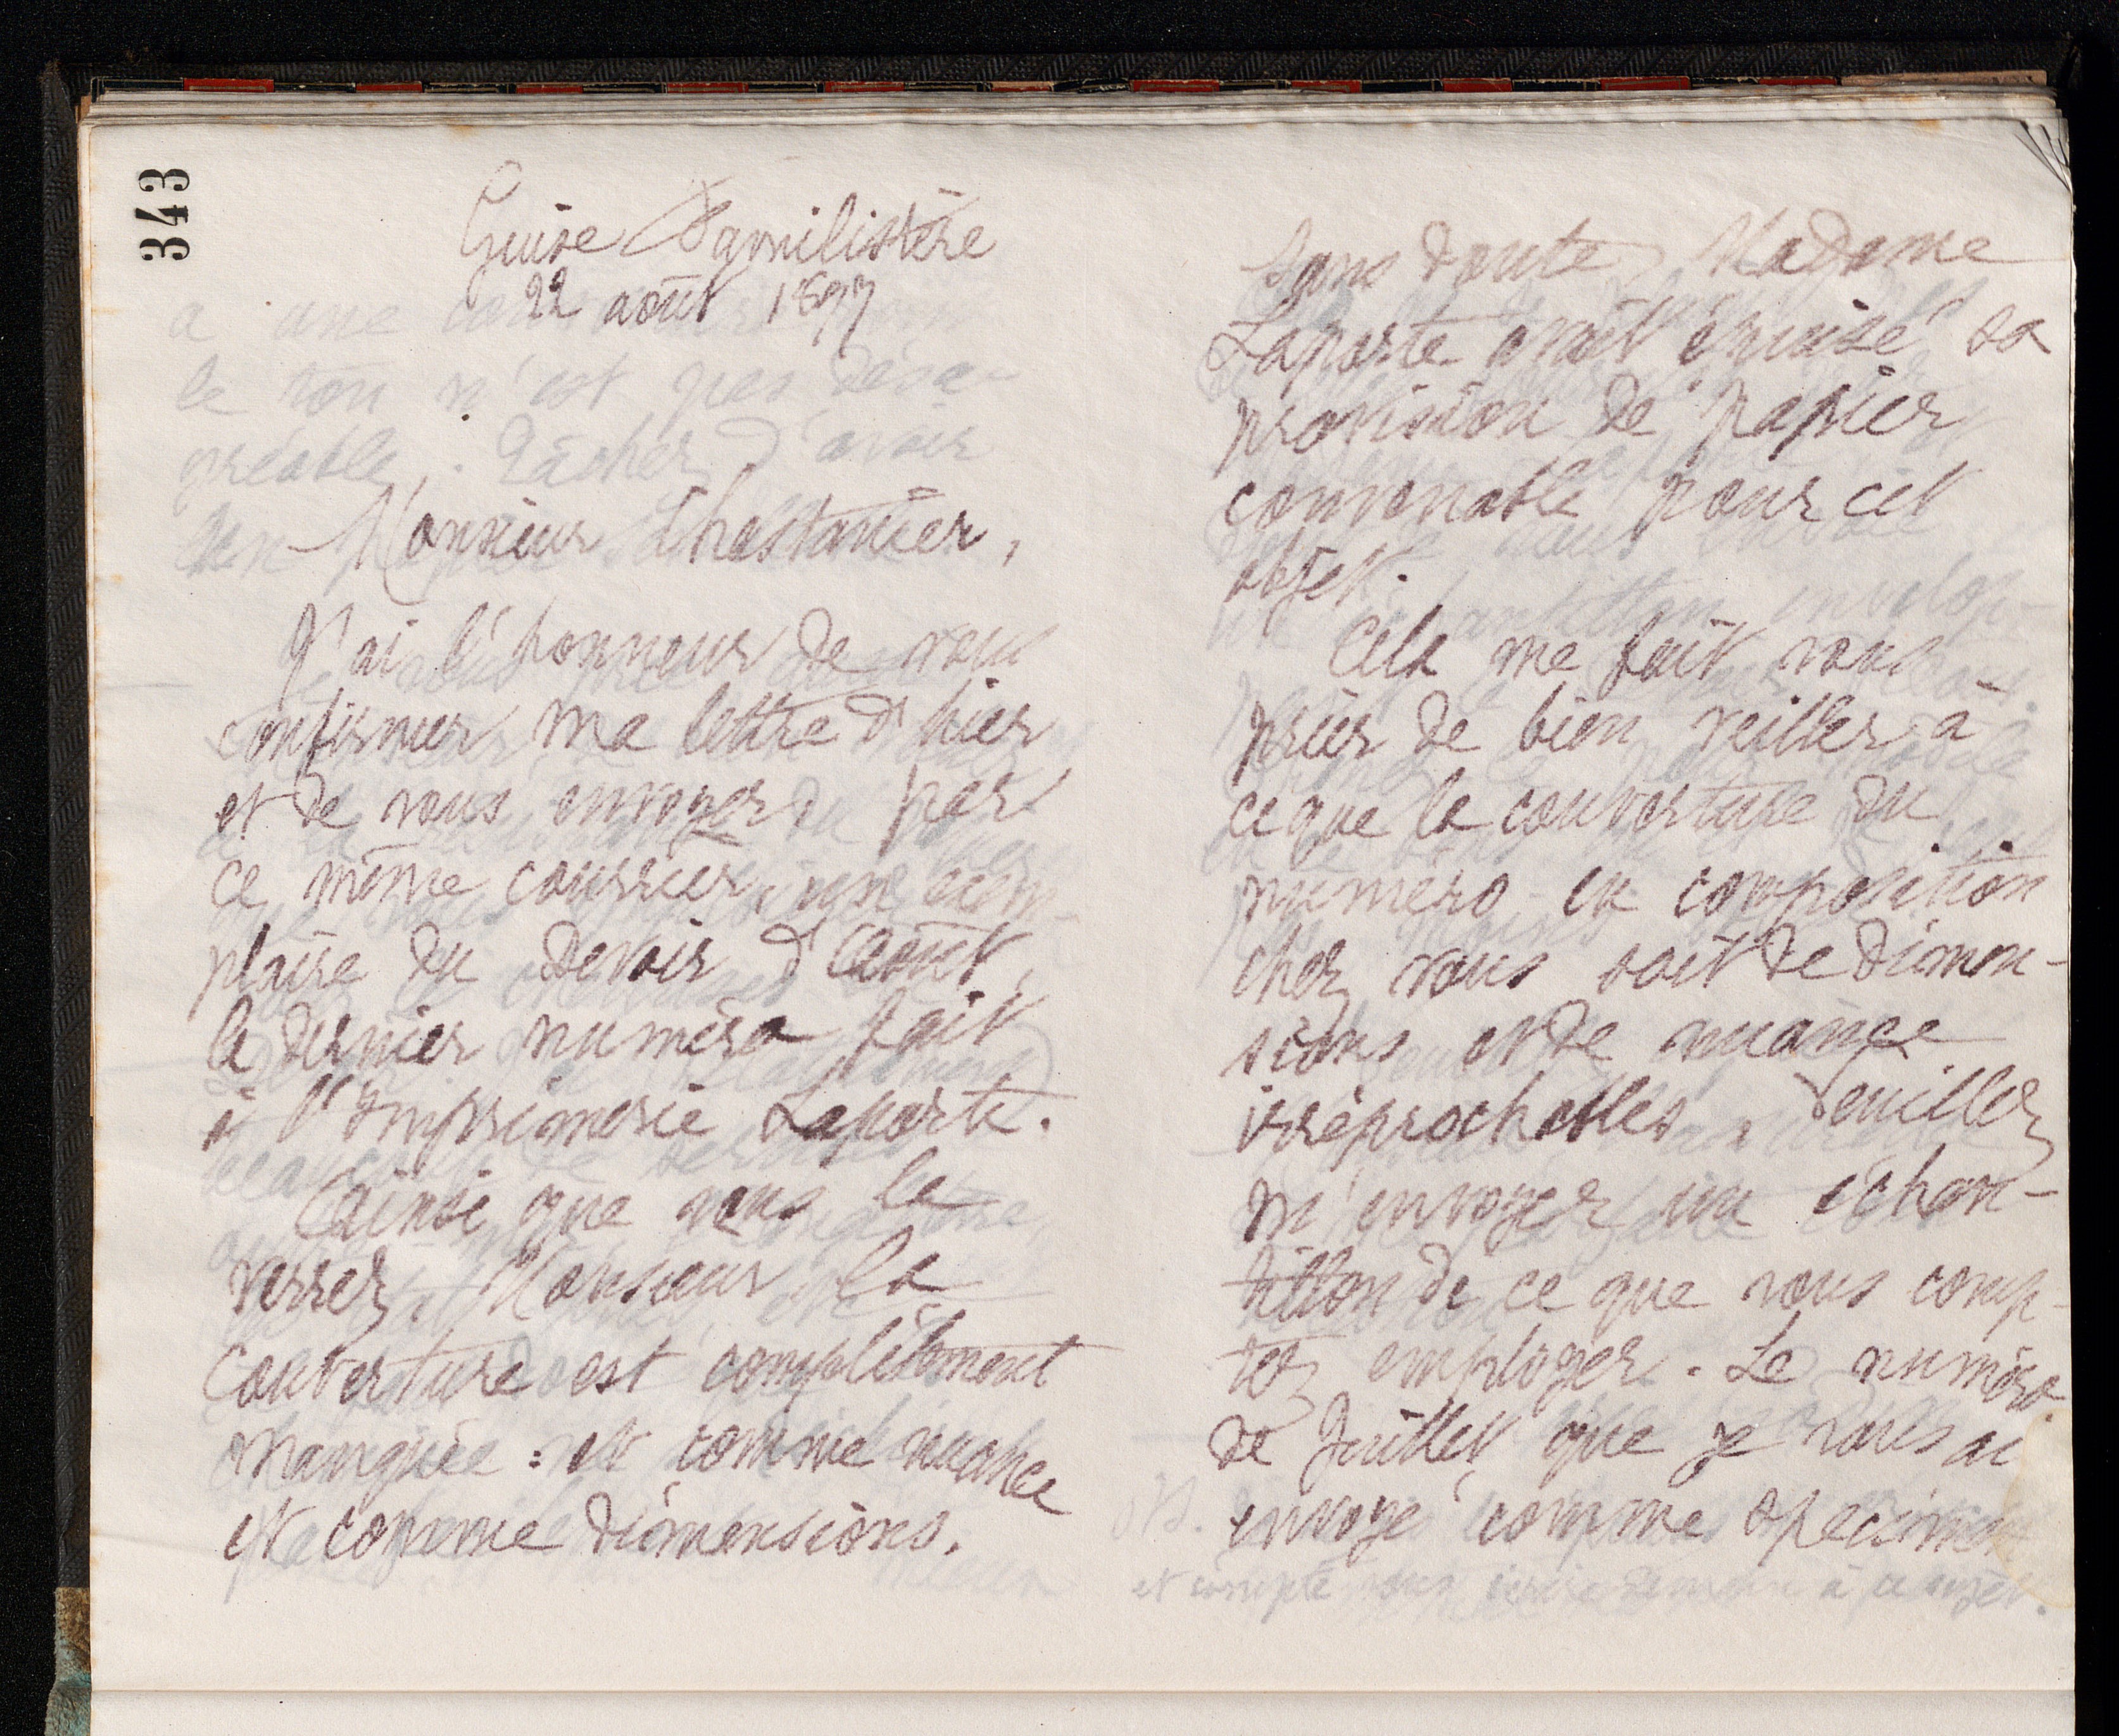 343
Guise Familistère
22 août 1897
Monsieur Chastanier,
J'ai l'honneur de vous
confirmer ma lettre d'hier
et de vous envoyer par
ce même courrier, un exem-
plaire du Devoir d'Août,
le dernier numéro fait
à l'Imprimerie Laporte.
Ainsi que vous le
verrez, Monsieur la
couverture est complètement
manquée : et comme nuance
et comme dimensions.
Sans doute, Madame
Laporte avait épuisé sa
provision de papier
convenable pour cet
objet.
Cela me fait vous
prier de bien veiller à
ce que la couverture du
numéro en composition
chez vous soit de dimen-
sions et de nuance
irréprochables. Veuillez
m'envoyer un échan-
tillon de ce que vous comp-
tez employer. Le numéro
de Juillet que je vous ai
envoyé comme specimen